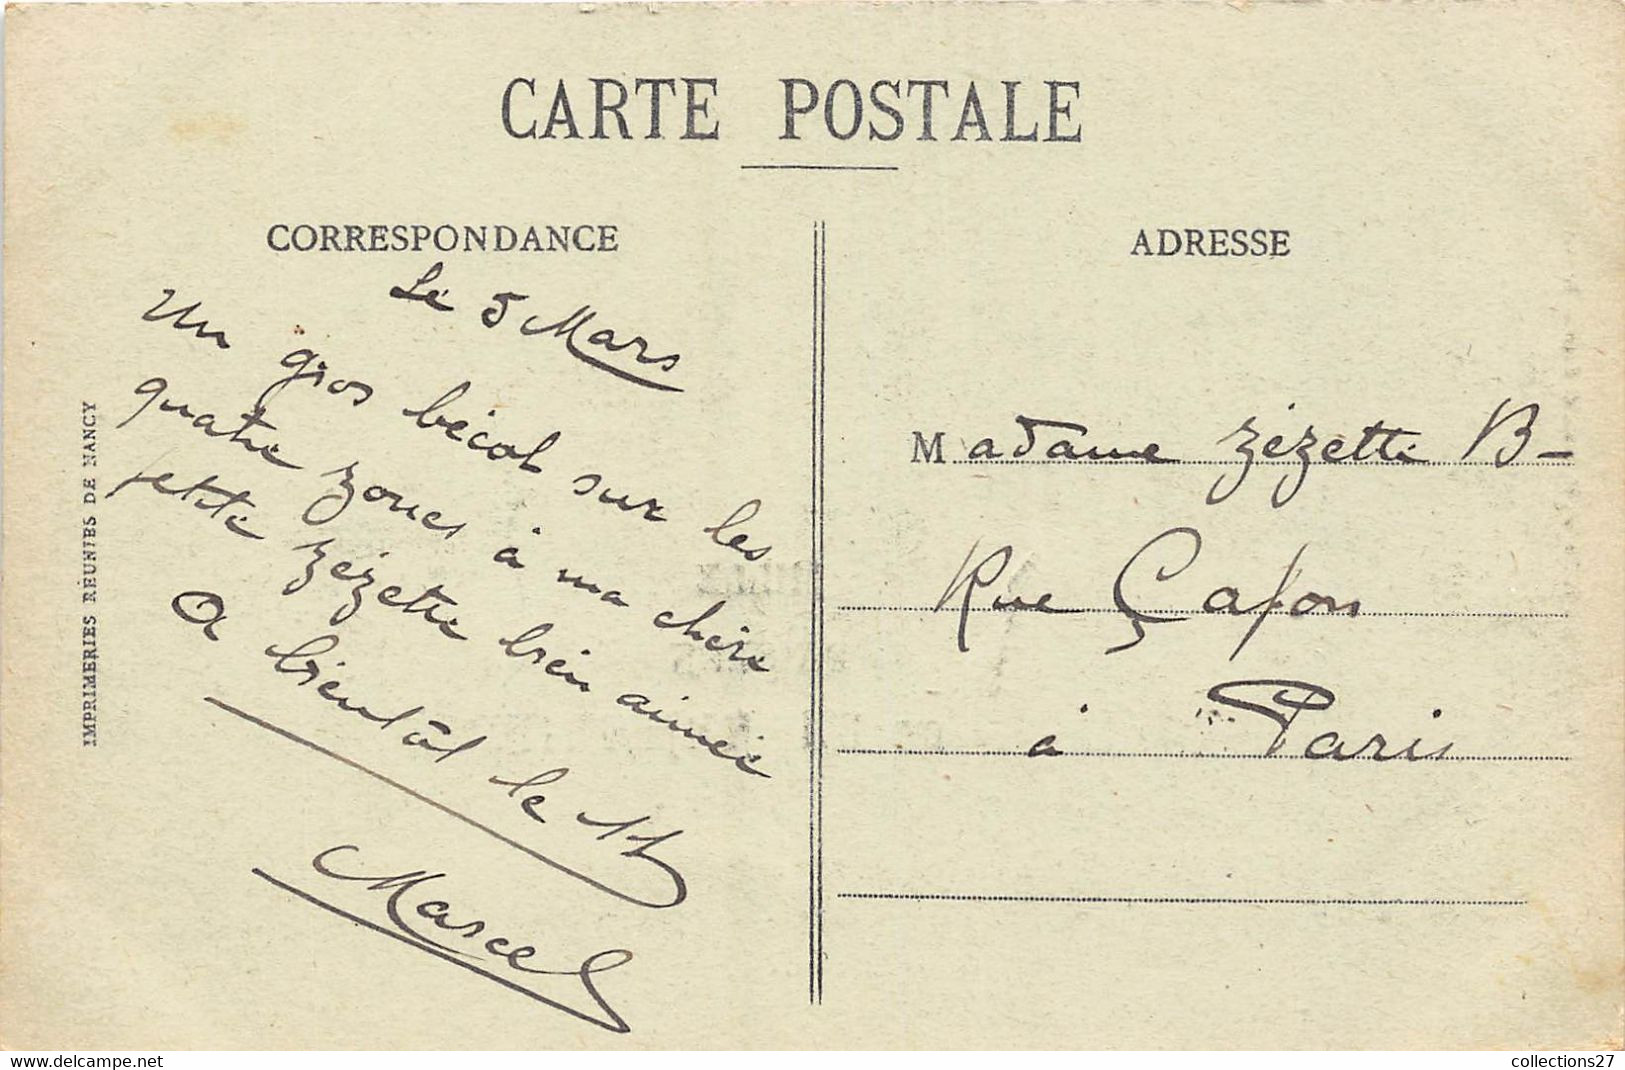 CARTE POSTALE
CORRESPONDANCE
Le 5 Mars
Un gros bécot sur les
quatre zones à ma chère
petite Zézette bien aimée
A bientôt le 11
Marcel
IMPRIMERIES RÉUNIES DE NANCY
ADRESSE
Madame Zézette B-
Rue Çafon
à Paris
www.delcampe.net
collections27